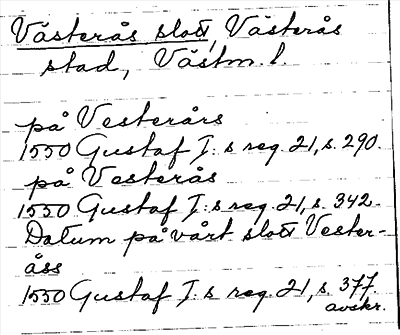 Västerås slott, Västerås
stad, Västm. l.
på Vesterårs
1550 Gustaf I:s reg. 21, s. 290.
på Vesterås
1550 Gustaf I:s reg. 21, s. 342.
Datum på vårt slott Vester-
åss
1550 Gustaf I:s reg. 21, s. 377
avskr.